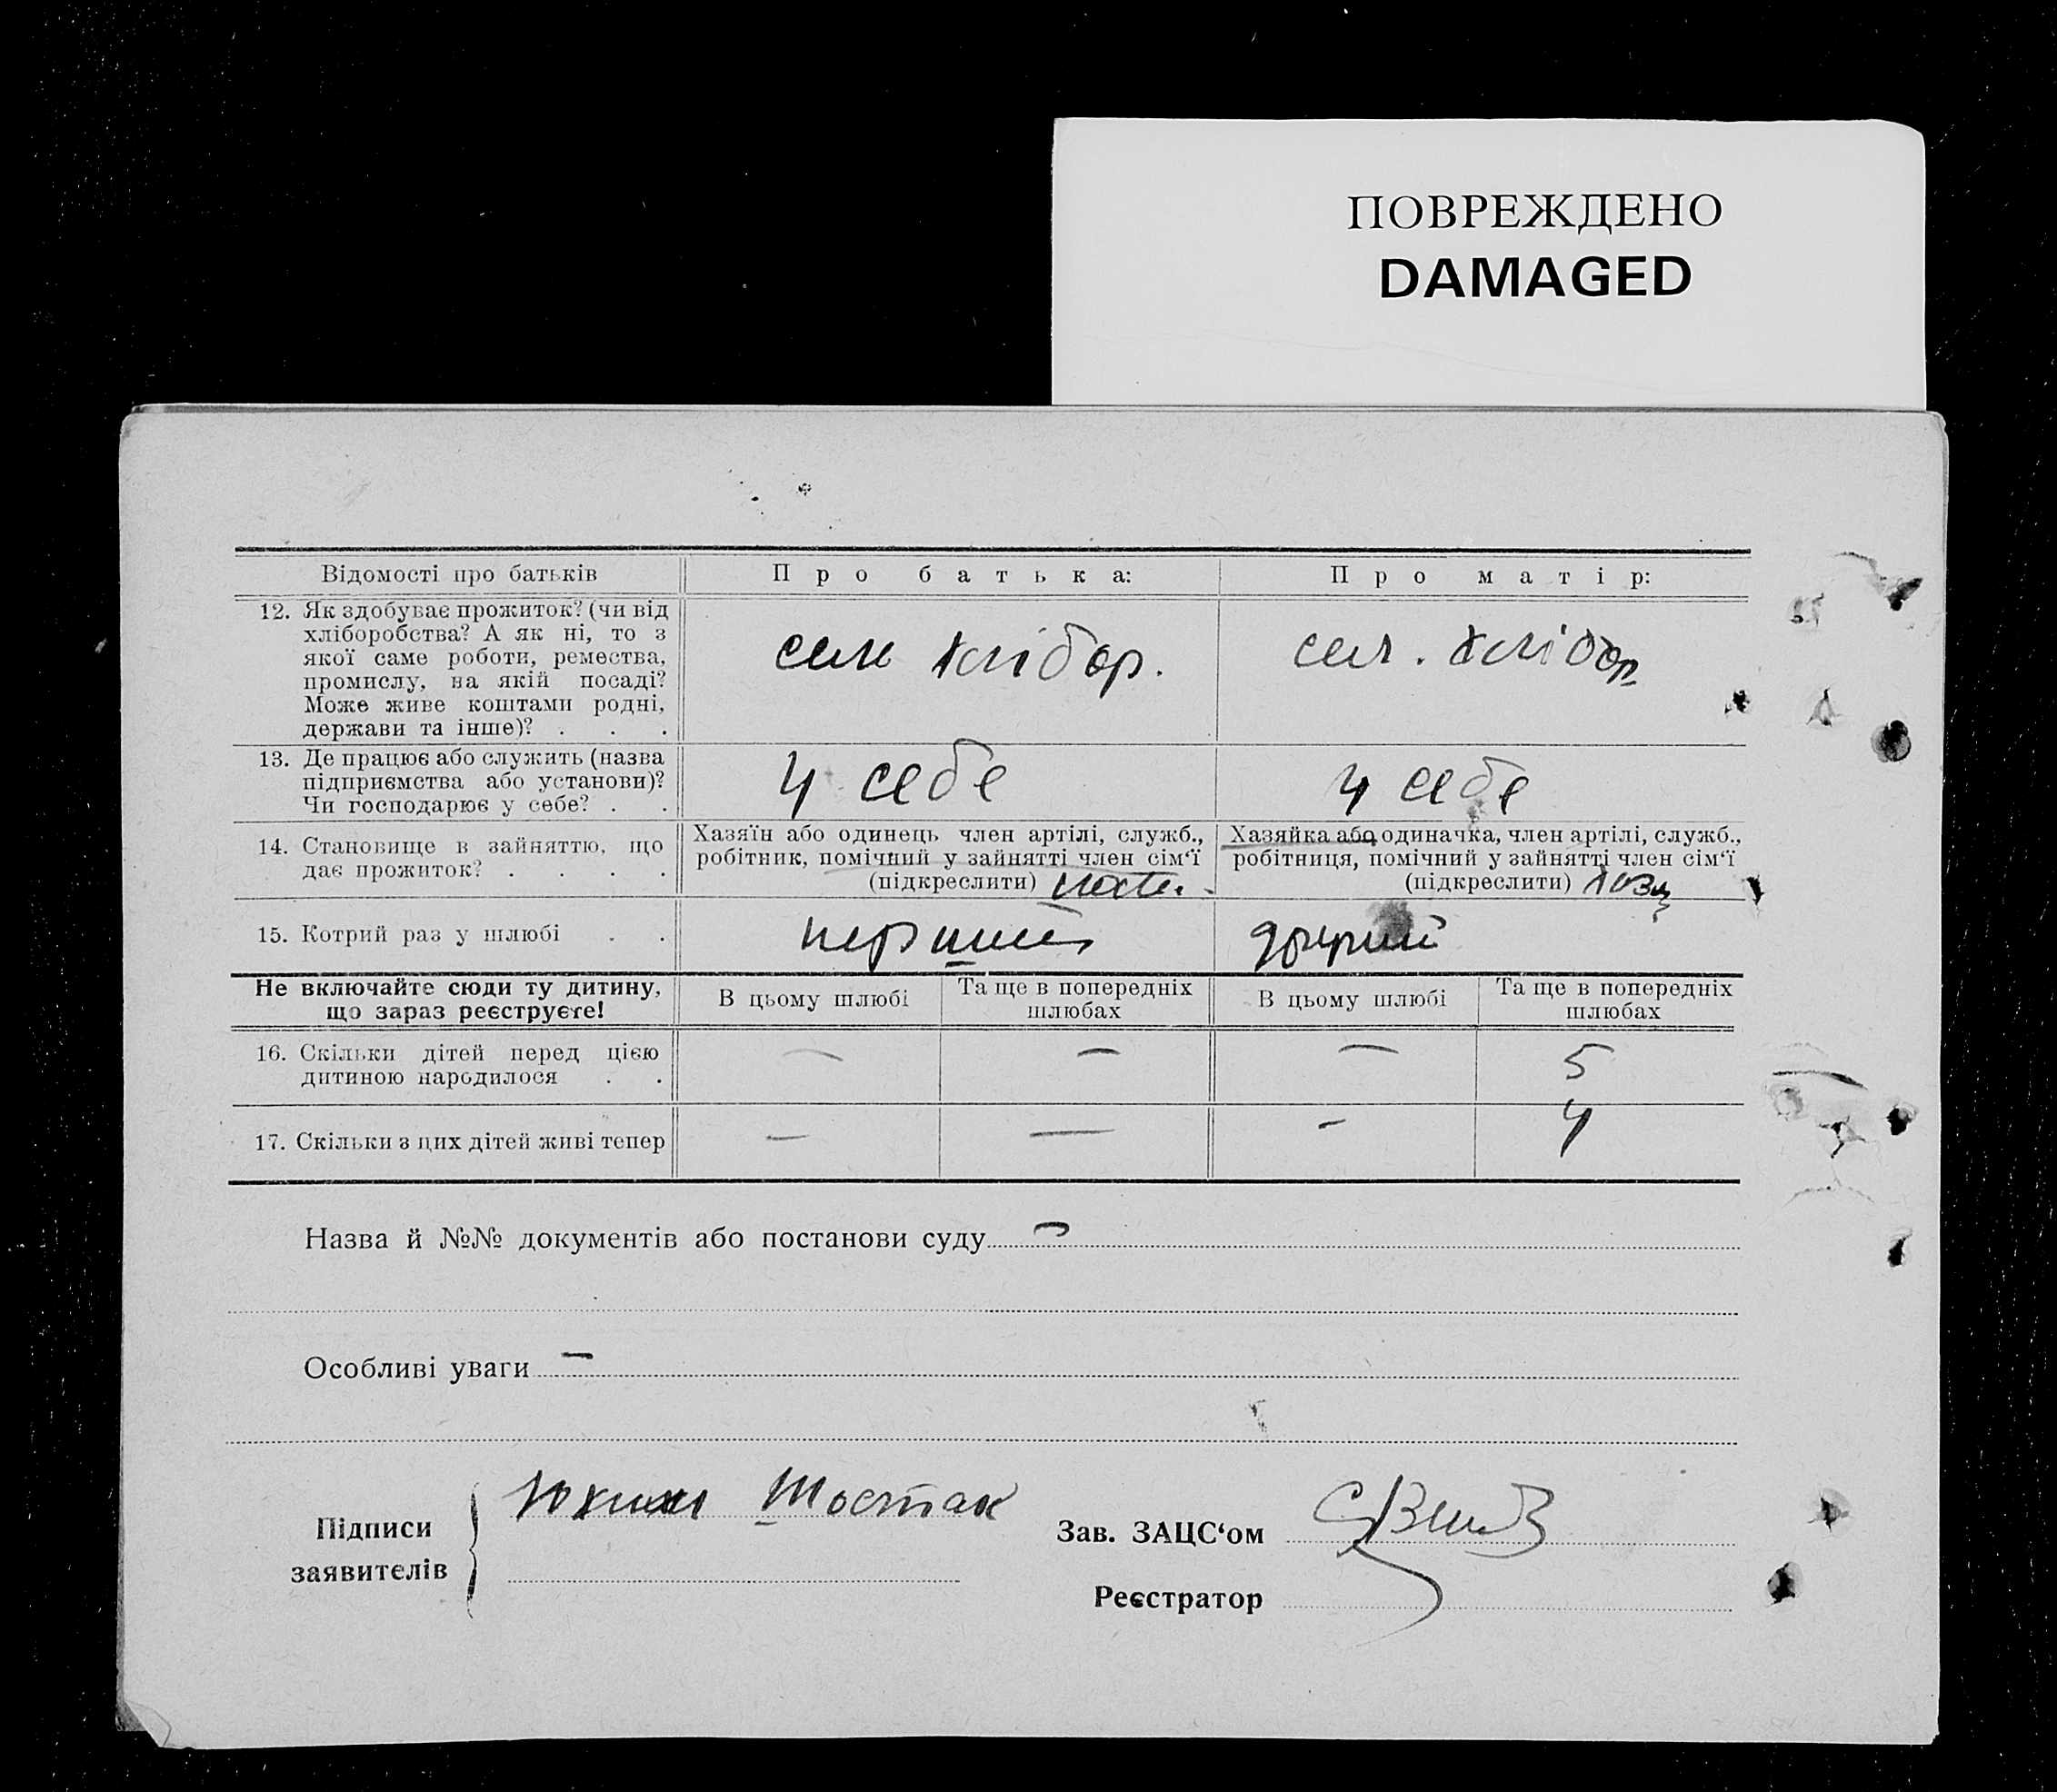 ПОВРЕЖДЕНО
DAMAGED
Відомості про батьків
Про батька:
Про матір:
12. Як здобуває прожиток? (чи від
хліборобства? А як ні, то з
якої саме роботи, ремества,
промислу, на якій посаді?
Може живе коштами родні,
держави та інше)? . . .
сел хлібор.
сел. хлібор
13. Де працює або служить (назва
підприємства або установи)?
Чи господарює у себе? . .
у себе
у себе
14. Становище в зайняттю, що
дає прожиток? . . . .
Хазяїн або одинець член артілі, служб.,
робітник, помічний у зайнятті член сім‘ї
(підкреслити)
Хазяйка або одиначка, член артілі, служб.,
робітниця, помічний у зайнятті член сім‘ї
(підкреслити)
15. Котрий раз у шлюбі . .
перший
другий
Не включайте сюди ту дитину,
що зараз реєструєте!
В цьому шлюбі
Та ще в попередніх
шлюбах
В цьому шлюбі
Та ще в попередніх
шлюбах
16. Скільки дітей перед цією
дитиною народилося . .
— — — 5
17. Скільки з цих дітей живі тепер
— — — 4
Назва й №№ документів або постанови суду —
Особливі уваги —
Підписи
заявителів
Шостак
Зав. ЗАЦС‘ом
Реєстратор